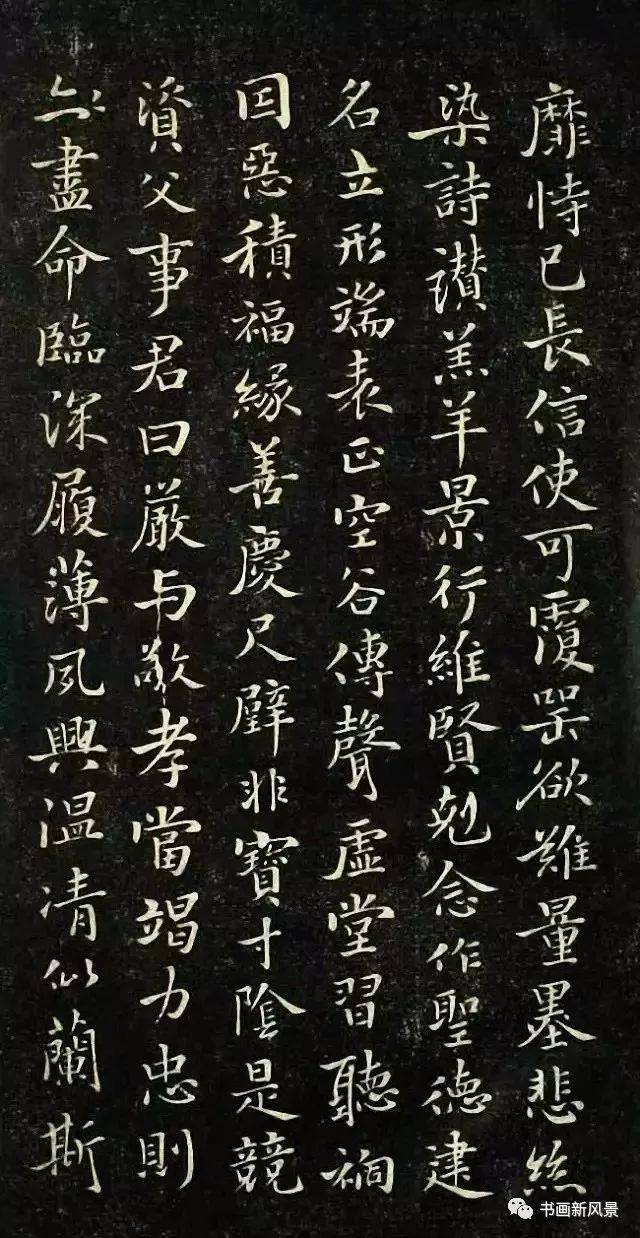 靡恃己長信使可覆器欲難量墨悲絲
染詩讃羔羊景行維賢剋念作聖德建
名立形端表正空谷傳聲虛堂習聽禍
因惡積福緣善慶尺璧非寶寸陰是競
資父事君曰嚴与敬孝當竭力忠則
盡命臨深履薄夙興溫凊似蘭斯
书画新风景